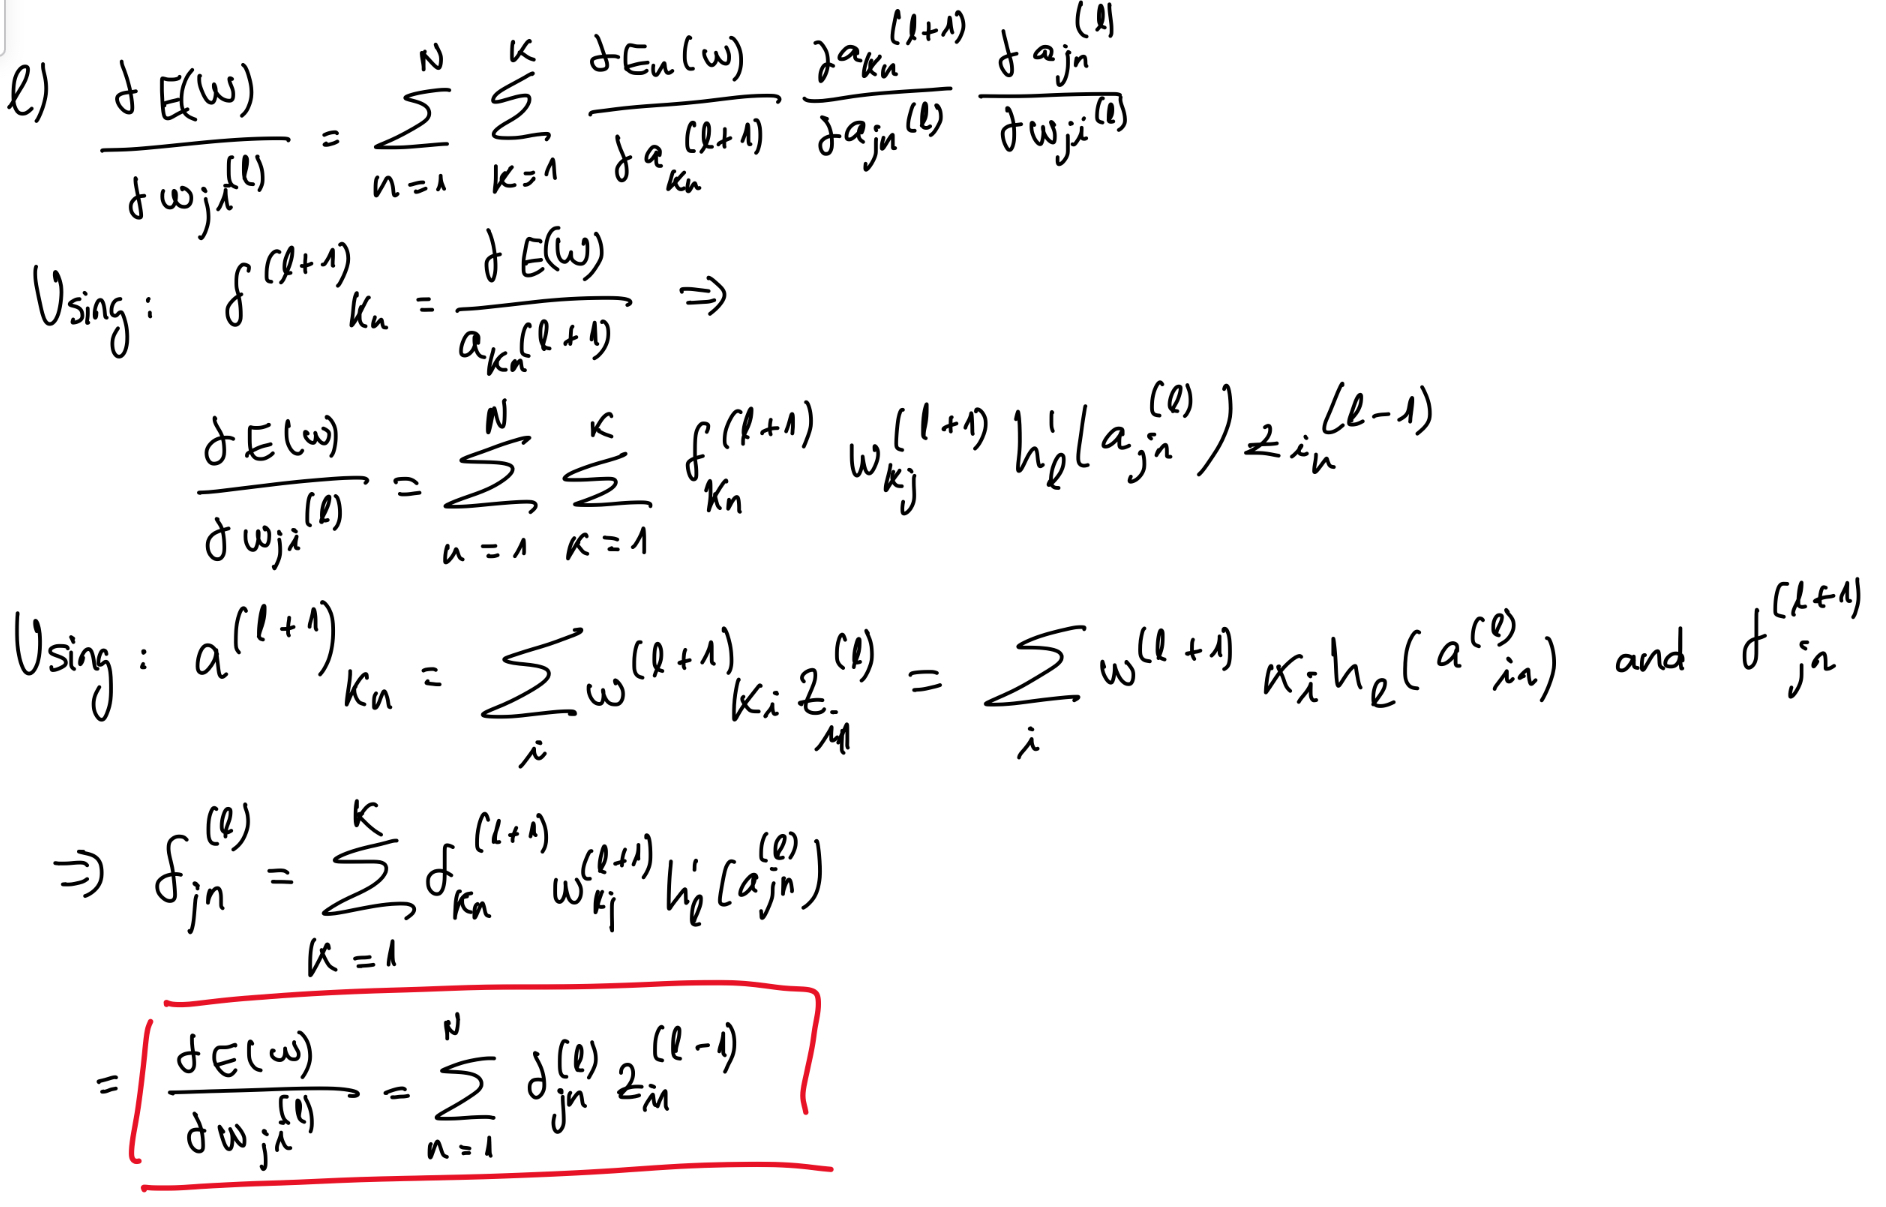 l) ∂E(w)/∂w_{ji}^{(l)} = Σ_{n=1}^{N} Σ_{K=1}^{K} ∂E_n(w)/∂a_{Kn}^{(l+1)} ∂a_{Kn}^{(l+1)}/∂a_{jn}^{(l)} ∂a_{jn}^{(l)}/∂w_{ji}^{(l)}
Using: δ^{(l+1)}_{Kn} = ∂E(w)/a_{Kn}^{(l+1)} ⇒
∂E(w)/∂w_{ji}^{(l)} = Σ_{n=1}^{N} Σ_{K=1}^{K} δ_{Kn}^{(l+1)} w_{Kj}^{(l+1)} h'_l(a_{jn}^{(l)}) z_{in}^{(l-1)}
Using: a^{(l+1)}_{Kn} = Σ_i w^{(l+1)}_{Ki} z_{in}^{(l)} = Σ_i w^{(l+1)}_{Ki} h_l(a^{(l)}_{in}) and δ^{(l+1)}_{jn}
⇒ δ_{jn}^{(l)} = Σ_{K=1}^{K} δ_{Kn}^{(l+1)} w_{Kj}^{(l+1)} h'_l(a_{jn}^{(l)})
= ∂E(w)/∂w_{ji}^{(l)} = Σ_{n=1}^{N} δ_{jn}^{(l)} z_{in}^{(l-1)}